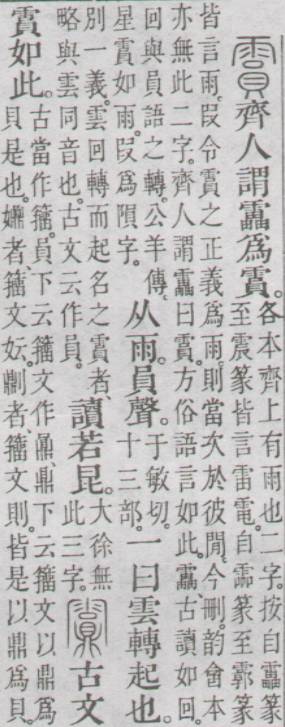 霣齊人謂靁爲霣。
各本齊上有雨也二字。按自靁篆
至震篆皆言雷電。自䨮篆至霩篆
皆言雨。叚令霣之正義爲雨。則當次於彼閒。今刪。韵會本
亦無此二字。齊人謂靁曰霣。方俗語言如此。靁古讀如回。
回與員語之轉。公羊傳
星霣如雨。叚爲隕字。
从雨。員聲。
于敏切。
十三部。
一曰雲轉起也。
別一義。雲回轉而起名之霣者、
略與雲同音也。古文云作員。
讀若昆。
大徐無
此三字。
古文
霣如此。
古當作籒。員下云籒文作𪔅。鼎下云籒文以鼎爲
貝是也。者、籒文妘。𠟭者、籒文則。皆是以鼎爲貝。